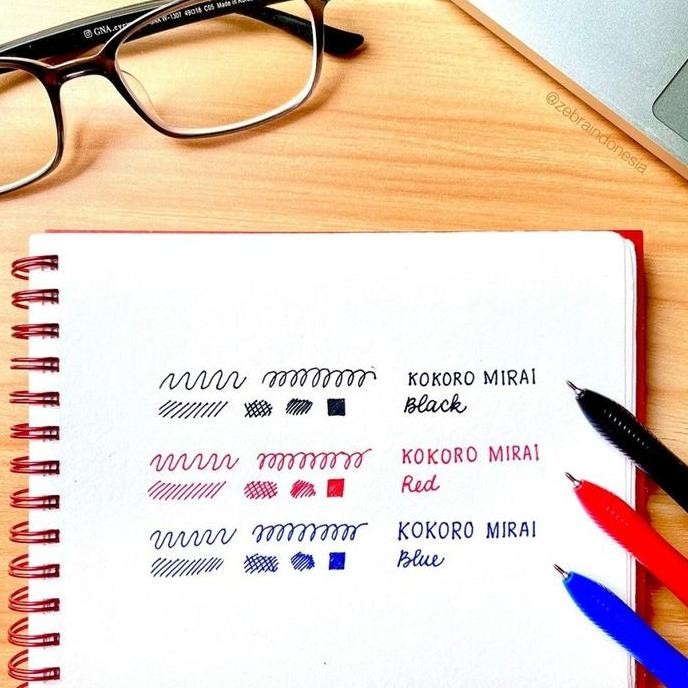 GNA
W-1307 49□18 C05 Made in
@zebraindonesia
KOKORO MIRAI
Black
KOKORO MIRAI
Red
KOKORO MIRAI
Blue